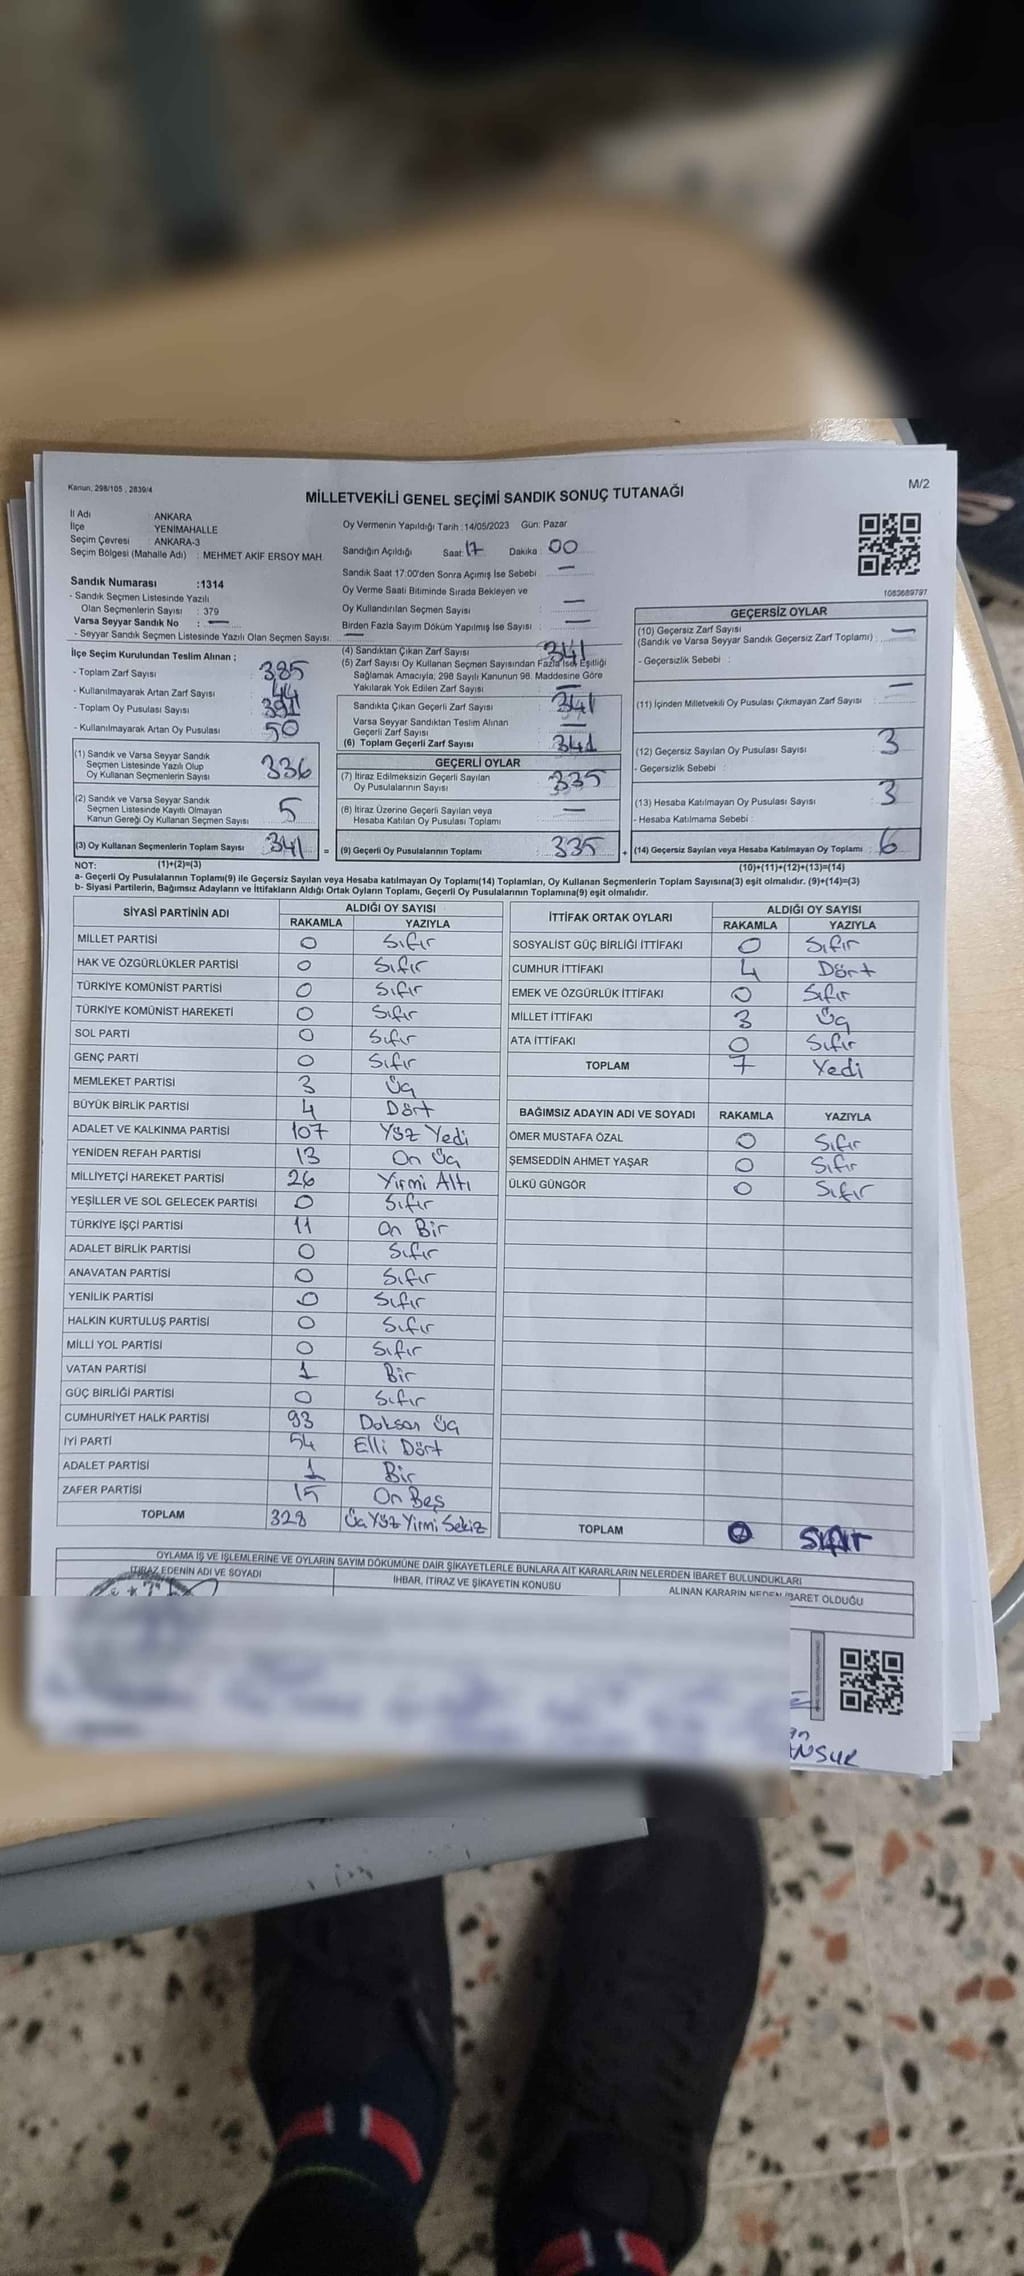 Kanun, 298/105 , 2839/4
M/2
MİLLETVEKİLİ GENEL SEÇİMİ SANDIK SONUÇ TUTANAĞI
İl Adı : ANKARA
İlçe YENİMAHALLE
Seçim Çevresi : ANKARA-3
Seçim Bölgesi (Mahalle Adı) : MEHMET AKİF ERSOY MAH.
Sandık Numarası :1314
- Sandık Seçmen Listesinde Yazılı
Olan Seçmenlerin Sayısı : 379
Varsa Seyyar Sandık No : —
- Seyyar Sandık Seçmen Listesinde Yazılı Olan Seçmen Sayısı: —
Oy Vermenin Yapıldığı Tarih :14/05/2023 Gün: Pazar
Sandığın Açıldığı Saat: 17 Dakika : 00
Sandık Saat 17:00'den Sonra Açımış İse Sebebi : —
Oy Verme Saati Bitiminde Sırada Bekleyen ve
Oy Kullandırılan Seçmen Sayısı : —
Birden Fazla Sayım Döküm Yapılmış İse Sayısı : —
1083689797
İlçe Seçim Kurulundan Teslim Alınan ;
- Toplam Zarf Sayısı : 385
- Kullanılmayarak Artan Zarf Sayısı : 44
- Toplam Oy Pusulası Sayısı : 391
- Kullanılmayarak Artan Oy Pusulası : 50
(1) Sandık ve Varsa Seyyar Sandık
Seçmen Listesinde Yazılı Olup
Oy Kullanan Seçmenlerin Sayısı : 336
(2) Sandık ve Varsa Seyyar Sandık
Seçmen Listesinde Kayıtlı Olmayan
Kanun Gereği Oy Kullanan Seçmen Sayısı : 5
(3) Oy Kullanan Seçmenlerin Toplam Sayısı : 341 =
(4) Sandıktan Çıkan Zarf Sayısı : 341
(5) Zarf Sayısı Oy Kullanan Seçmen Sayısından Fazla İse, Eşitliği
Sağlamak Amacıyla, 298 Sayılı Kanunun 98. Maddesine Göre
Yakılarak Yok Edilen Zarf Sayısı : —
Sandıkta Çıkan Geçerli Zarf Sayısı : 341
Varsa Seyyar Sandıktan Teslim Alınan
Geçerli Zarf Sayısı : —
(6) Toplam Geçerli Zarf Sayısı : 341
GEÇERLİ OYLAR
(7) İtiraz Edilmeksizin Geçerli Sayılan
Oy Pusulalarının Sayısı : 335
(8) İtiraz Üzerine Geçerli Sayılan veya
Hesaba Katılan Oy Pusulası Toplamı : —
(9) Geçerli Oy Pusulalarının Toplamı : 335 +
GEÇERSİZ OYLAR
(10) Geçersiz Zarf Sayısı
(Sandık ve Varsa Seyyar Sandık Geçersiz Zarf Toplamı) : —
- Geçersizlik Sebebi :
(11) İçinden Milletvekili Oy Pusulası Çıkmayan Zarf Sayısı : —
(12) Geçersiz Sayılan Oy Pusulası Sayısı : 3
- Geçersizlik Sebebi :
(13) Hesaba Katılmayan Oy Pusulası Sayısı : 3
- Hesaba Katılmama Sebebi :
(14) Geçersiz Sayılan veya Hesaba Katılmayan Oy Toplamı : 6
NOT: (1)+(2)=(3)
(10)+(11)+(12)+(13)=(14)
a- Geçerli Oy Pusulalarının Toplamı(9) ile Geçersiz Sayılan veya Hesaba katılmayan Oy Toplamı(14) Toplamları, Oy Kullanan Seçmenlerin Toplam Sayısına(3) eşit olmalıdır. (9)+(14)=(3)
b- Siyasi Partilerin, Bağımsız Adayların ve İttifakların Aldığı Ortak Oyların Toplamı, Geçerli Oy Pusulalarının Toplamına(9) eşit olmalıdır.
SİYASİ PARTİNİN ADI ALDIĞI OY SAYISI
RAKAMLA YAZIYLA
MİLLET PARTİSİ 0 Sıfır
HAK VE ÖZGÜRLÜKLER PARTİSİ 0 Sıfır
TÜRKİYE KOMÜNİST PARTİSİ 0 Sıfır
TÜRKİYE KOMÜNİST HAREKETİ 0 Sıfır
SOL PARTİ 0 Sıfır
GENÇ PARTİ 0 Sıfır
MEMLEKET PARTİSİ 3 Üç
BÜYÜK BİRLİK PARTİSİ 4 Dört
ADALET VE KALKINMA PARTİSİ 107 Yüz Yedi
YENİDEN REFAH PARTİSİ 13 On Üç
MİLLİYETÇİ HAREKET PARTİSİ 26 Yirmi Altı
YEŞİLLER VE SOL GELECEK PARTİSİ 0 Sıfır
TÜRKİYE İŞÇİ PARTİSİ 11 On Bir
ADALET BİRLİK PARTİSİ 0 Sıfır
ANAVATAN PARTİSİ 0 Sıfır
YENİLİK PARTİSİ 0 Sıfır
HALKIN KURTULUŞ PARTİSİ 0 Sıfır
MİLLİ YOL PARTİSİ 0 Sıfır
VATAN PARTİSİ 1 Bir
GÜÇ BİRLİĞİ PARTİSİ 0 Sıfır
CUMHURİYET HALK PARTİSİ 93 Doksan Üç
İYİ PARTİ 54 Elli Dört
ADALET PARTİSİ 1 Bir
ZAFER PARTİSİ 15 On Beş
TOPLAM 328 Üç Yüz Yirmi Sekiz
İTTİFAK ORTAK OYLARI ALDIĞI OY SAYISI
RAKAMLA YAZIYLA
SOSYALİST GÜÇ BİRLİĞİ İTTİFAKI 0 Sıfır
CUMHUR İTTİFAKI 4 Dört
EMEK VE ÖZGÜRLÜK İTTİFAKI 0 Sıfır
MİLLET İTTİFAKI 3 Üç
ATA İTTİFAKI 0 Sıfır
TOPLAM 7 Yedi
BAĞIMSIZ ADAYIN ADI VE SOYADI RAKAMLA YAZIYLA
ÖMER MUSTAFA ÖZAL 0 Sıfır
ŞEMSEDDİN AHMET YAŞAR 0 Sıfır
ÜLKÜ GÜNGÖR 0 Sıfır
TOPLAM 0 Sıfır
OYLAMA İŞ VE İŞLEMLERİNE VE OYLARIN SAYIM DÖKÜMÜNE DAİR ŞİKAYETLERLE BUNLARA AİT KARARLARIN NELERDEN İBARET BULUNDUKLARI
İTİRAZ EDENİN ADI VE SOYADI
İHBAR, İTİRAZ VE ŞİKAYETİN KONUSU
ALINAN KARARIN NEDEN İBARET OLDUĞU